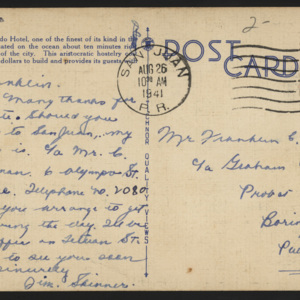 do Hotel, one of the finest of its kind in the
ated on the ocean about ten minutes
of the city. This aristocratic hostelry
dollars to build and provides its guests
2-
POST
CARD
SAN JUAN
AUG 26
10 AM
1941
P.R.
TANNER QUALITY VIEWS
nklin.
Many thanks for
Should you
to San Juan, my
is c/o Mr. C.
man. 6 Olympo St.
Telephone No. 2080
you arrange to get
during the day. I've
office on Tetuan St.
to see you soon
incerely
Jim. Skinner.
Mr Franklin C.
c/o Graham
Provo
Bori
Pu